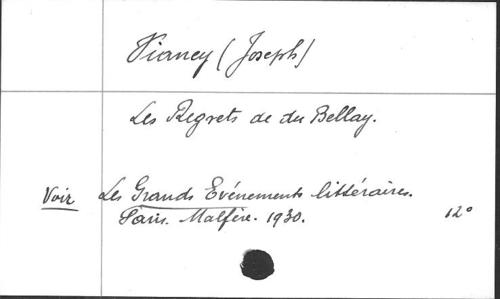 Vianey (Joseph)
Les Regrets de du Bellay.
Voir Les Grands Evénements littéraires.
Paris. Malfère. 1930. 12°